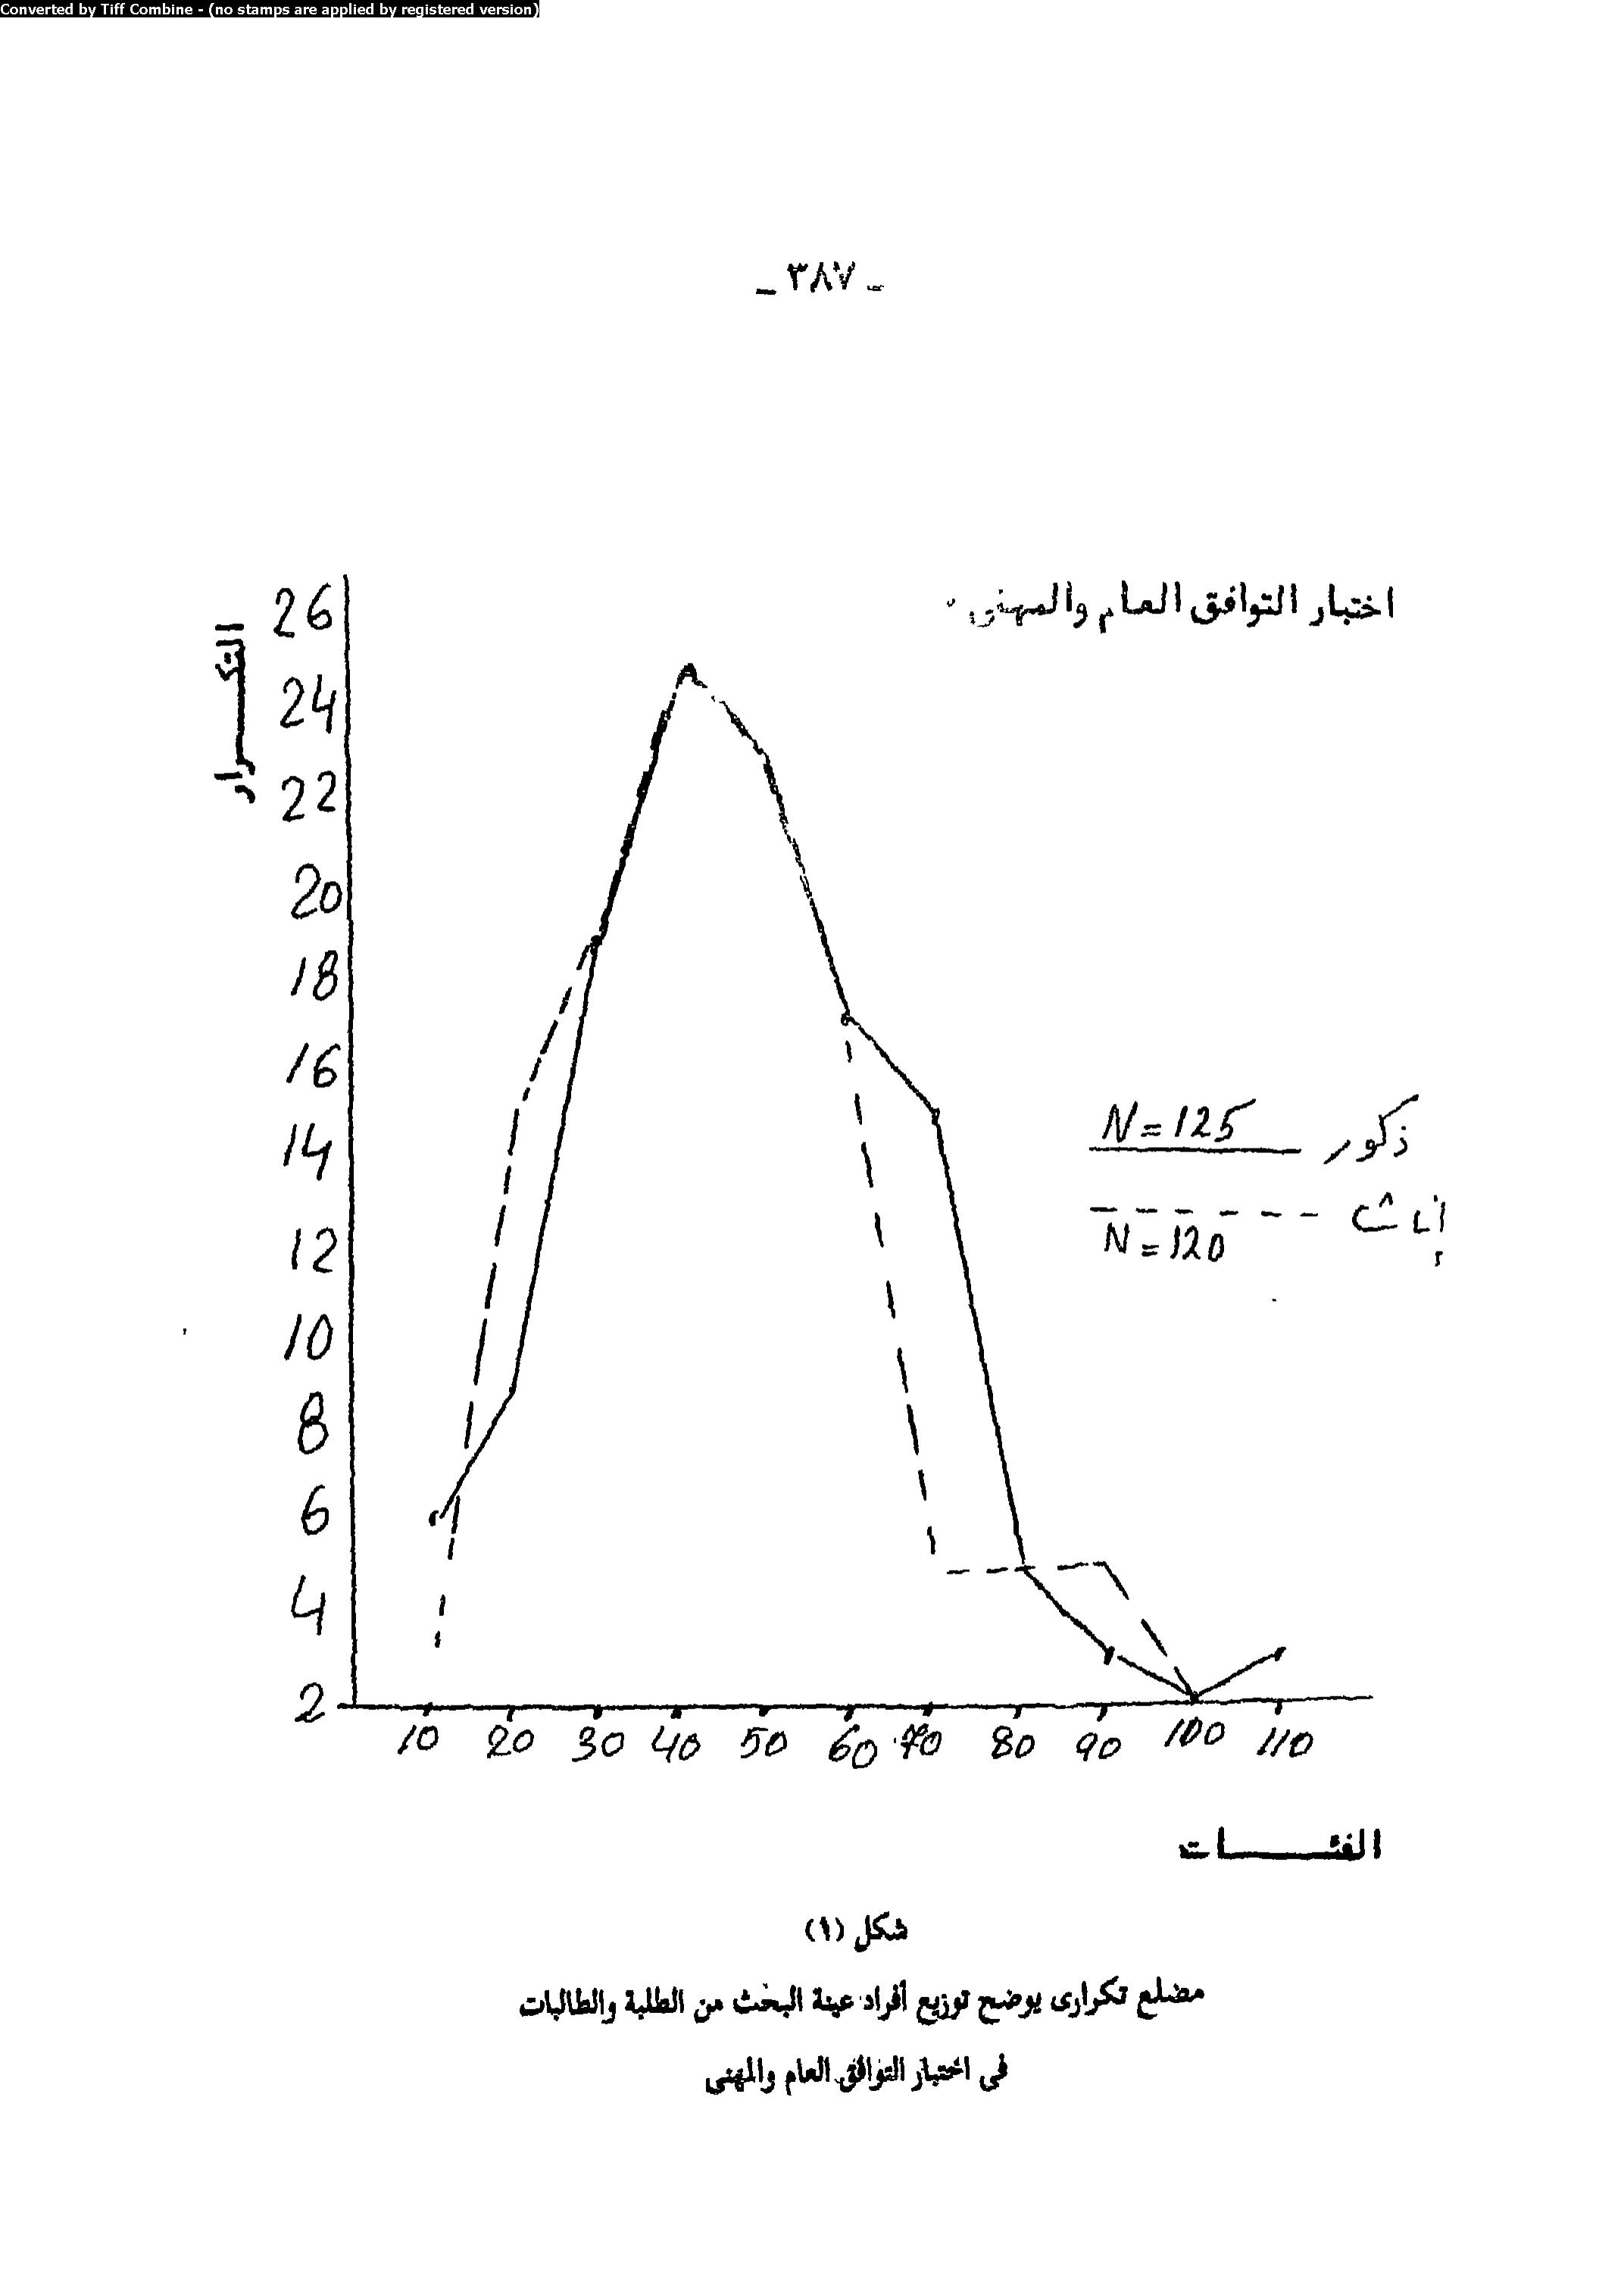 Converted by Tiff Combine - (no stamps are applied by registered version)
_ ٣٨٧ _
اختبار التوافق العام والمهنى
التكـــرار
26
24
22
20
18
16
14
12
10
8
6
4
2
N = 125 ذكور
إناث
N = 120
10 20 30 40 50 60 70 80 90 100 110
الفئـــــات
شكل (١)
مضلع تكرارى يوضح توزيع أفراد عينة البحث من الطلبة والطالبات
فى اختبار التوافق العام والمهنى